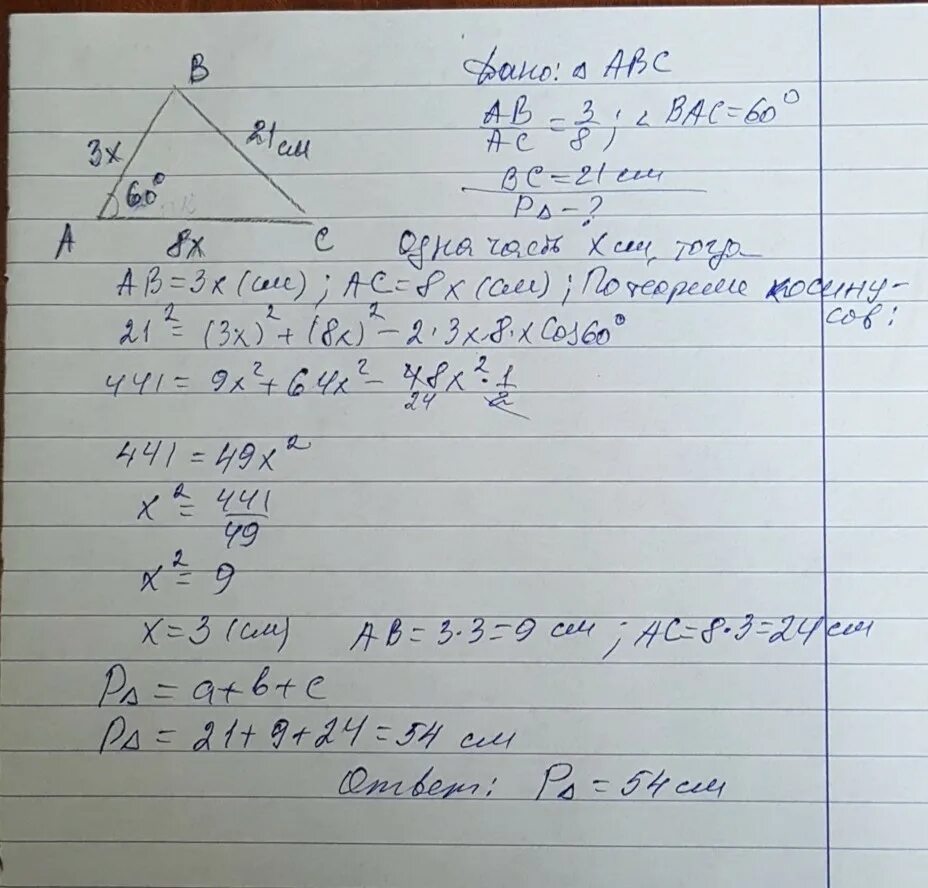 B
3x
21 см
60°
A
8x
C
Дано: △ ABC
AB/AC = 3/8; ∠ BAC = 60°
BC = 21 см
P△ - ?
Одна часть x см, тогда
AB = 3x (см); AC = 8x (см); По теореме косину-
сов:
21² = (3x)² + (8x)² - 2·3x·8·x Cos60°
441 = 9x² + 64x² - 48x² · 1/2
24
441 = 49x²
x² = 441/49
x² = 9
x = 3 (см) AB = 3·3 = 9 см; AC = 8·3 = 24 см
P△ = a + b + c
P△ = 21 + 9 + 24 = 54 см
Ответ: P△ = 54 см